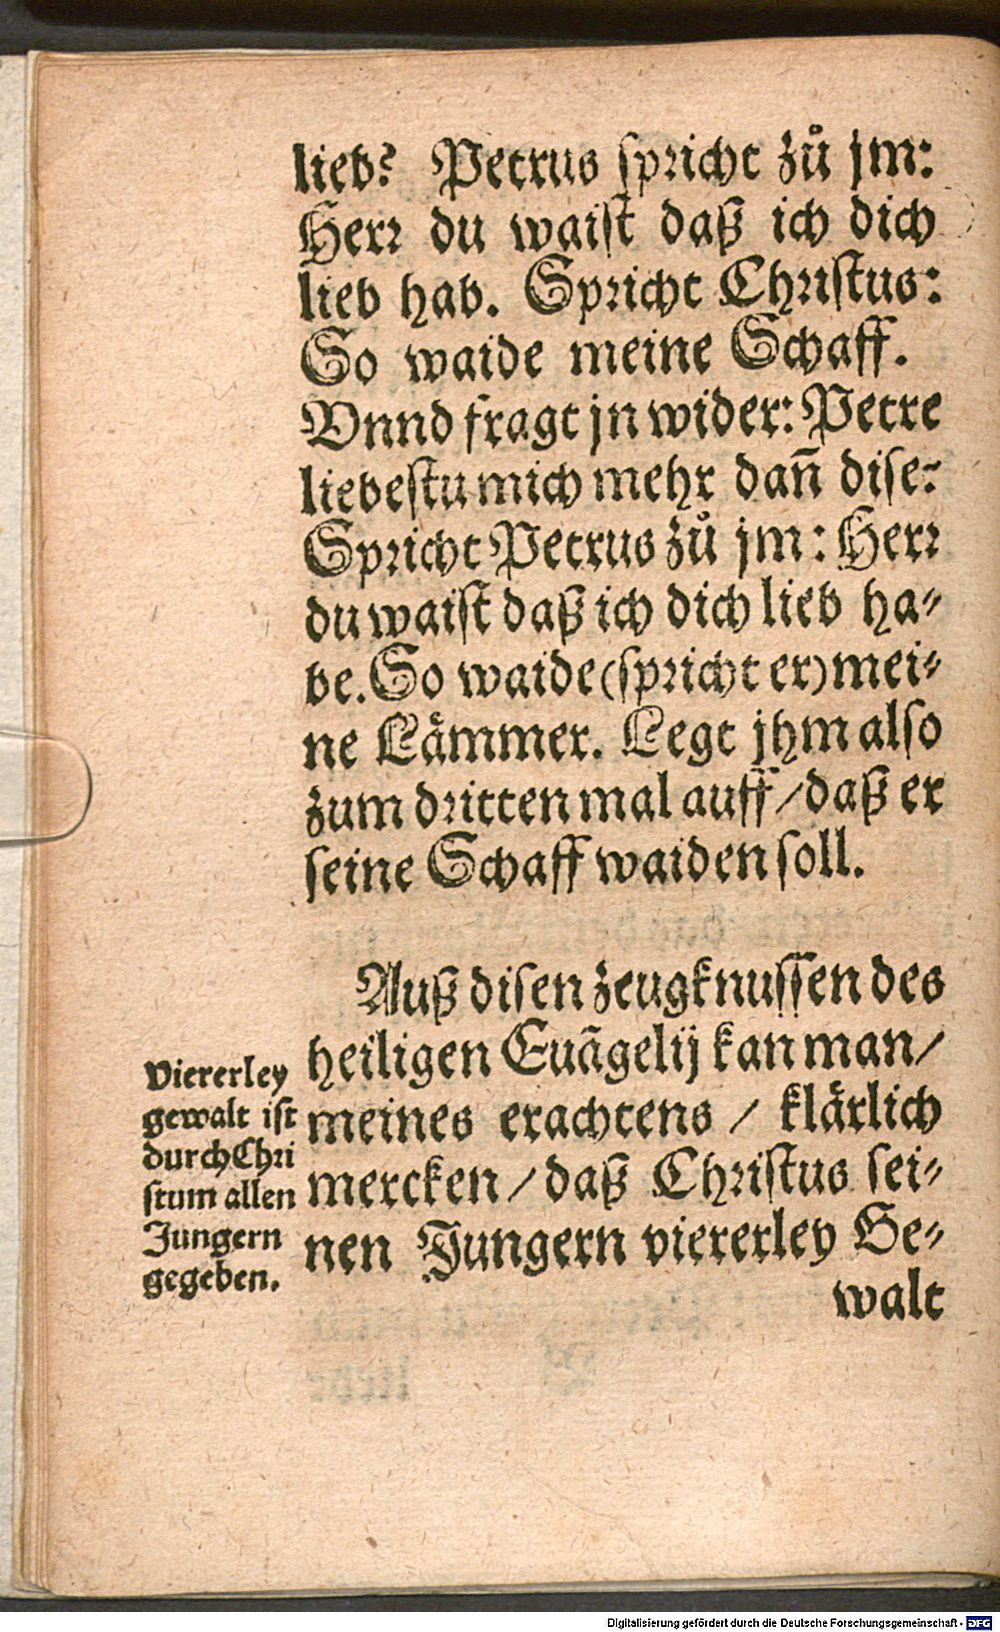 lieb? Petrus spricht zů jm:
Herr du waist daß ich dich
lieb hab. Spricht Christus:
So waide meine Schaff.
Vnnd fragt jn wider: Petre
liebestu mich mehr dañ dise?
Spricht Petrus zů jm: Herr
du waist daß ich dich lieb ha-
be. So waide (spricht er) mei-
ne Lämmer. Legt jhm also
zum dritten mal auff / daß er
seine Schaff waiden soll.
Auß disen zeugknussen des
heiligen Euãgelij kan man /
meines erachtens / klärlich
mercken / daß Christus sei-
nen Jungern viererley Ge-
walt
Viererley
gewalt ist
durch Chri
stum allen
Jungern
gegeben.
Digitalisierung gefördert durch die Deutsche Forschungsgemeinschaft - DFG